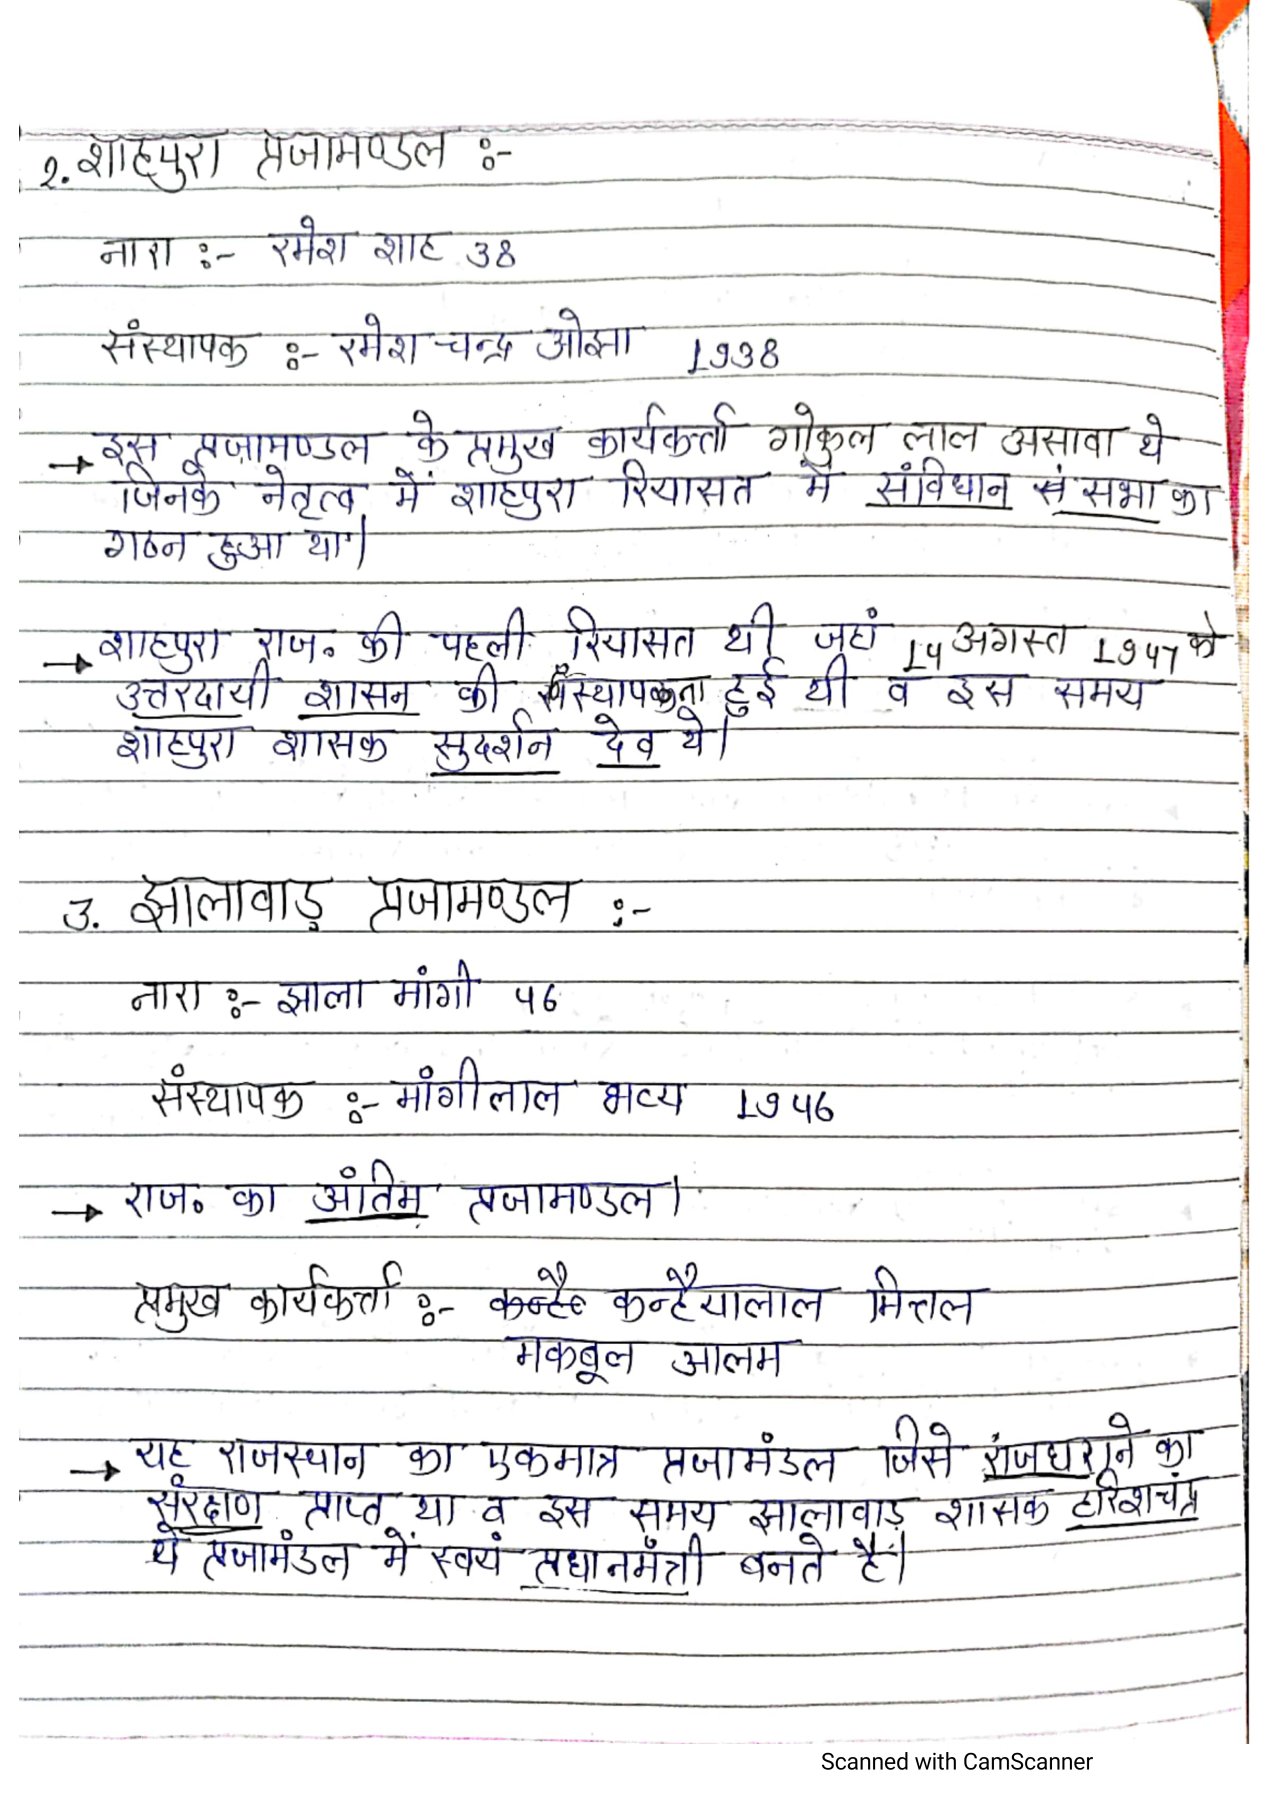 2. शाहपुरा प्रजामण्डल :-
नारा :- रमेश शाह 38
संस्थापक :- रमेश चन्द्र ओझा 1938
→ इस प्रजामण्डल के प्रमुख कार्यकर्ता गोकुल लाल असावा थे
जिनके नेतृत्व में शाहपुरा रियासत में संविधान सं सभा का
गठन हुआ था।
→ शाहपुरा राज. की पहली रियासत थी जहां 14 अगस्त 1947 को
उत्तरदायी शासन की हुई थी व इस समय
शाहपुरा शासक सुदर्शन देव थे।
3. झालावाड़ प्रजामण्डल :-
नारा :- झाला मांगी 46
संस्थापक :- मांगीलाल भव्य 1946
→ राज. का अंतिम प्रजामण्डल।
प्रमुख कार्यकर्त्ता :- कन्हैयालाल मित्तल
मकबूल आलम
→ यह राजस्थान का एकमात्र प्रजामंडल जिसे राजघराने का
संरक्षण प्राप्त था व इस समय झालावाड़ शासक हरिशचंद्र
थे प्रजामंडल में स्वयं प्रधानमंत्री बनते है।
Scanned with CamScanner